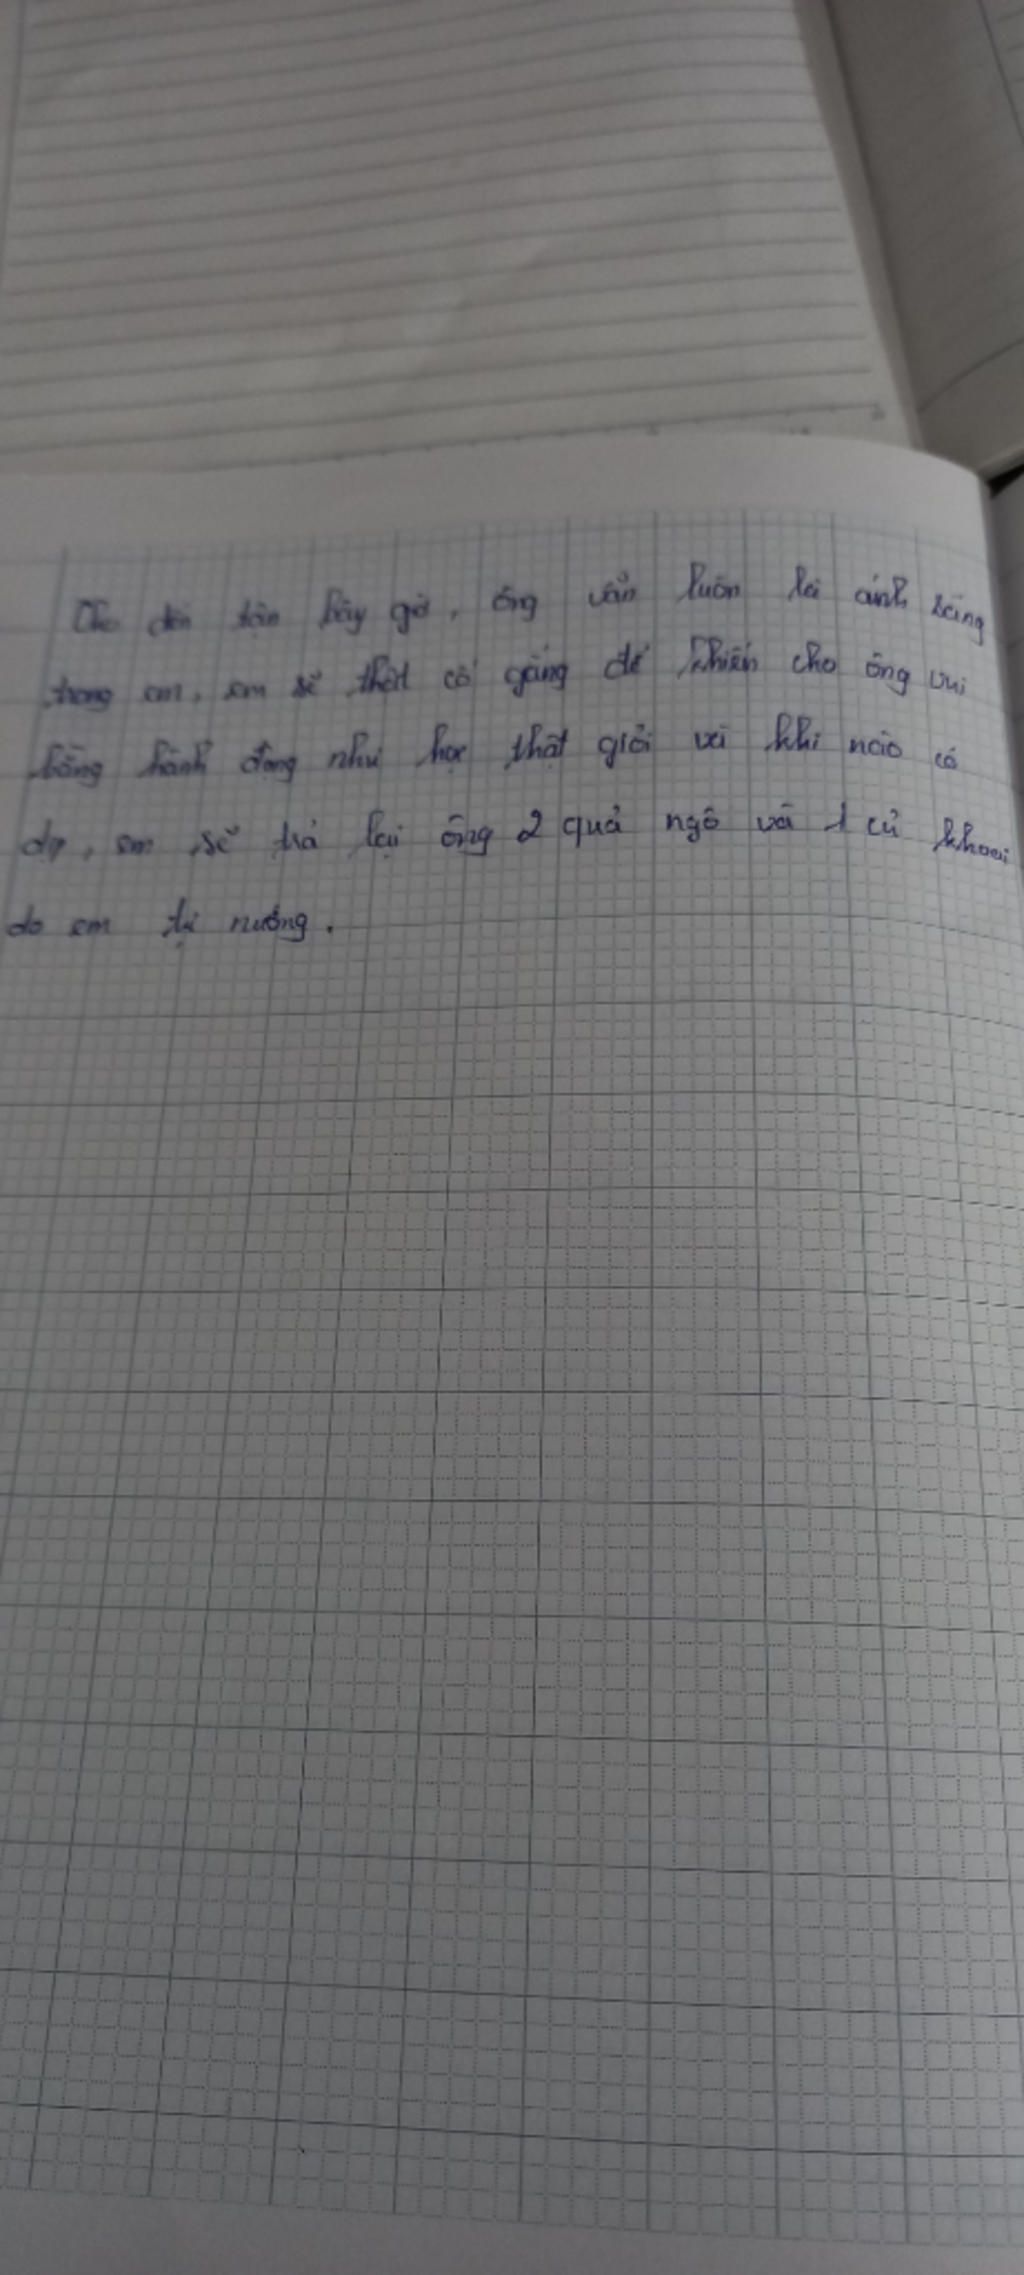 Cho đến tận bây giờ, ông vẫn luôn là ánh sáng
trong em, em sẽ thật cố gắng để khiến cho ông vui
bằng hành động như học thật giỏi và khi nào có
dịp, em sẽ trả lại ông 2 quả ngô và 1 củ khoai
do em tự nướng.